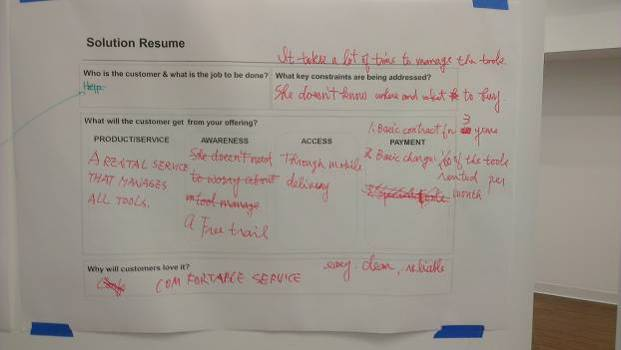 Solution Resume
It takes a lot of time to manage the tools.
Who is the customer & what is the job to be done?
Help.
What key constraints are being addressed?
She doesn't know where and what to buy.
What will the customer get from your offering?
PRODUCT/SERVICE
A RENTAL SERVICE
THAT MANAGES
ALL TOOLS.
AWARENESS
She doesn't need
to worry about
tool manage
a Free trail
ACCESS
Through mobile
delivery
1. Basic contract for 3 years
PAYMENT
2. Basic charge of the tools
rented per
month
Why will customers love it?
COMFORTABLE SERVICE
easy, clean, reliable